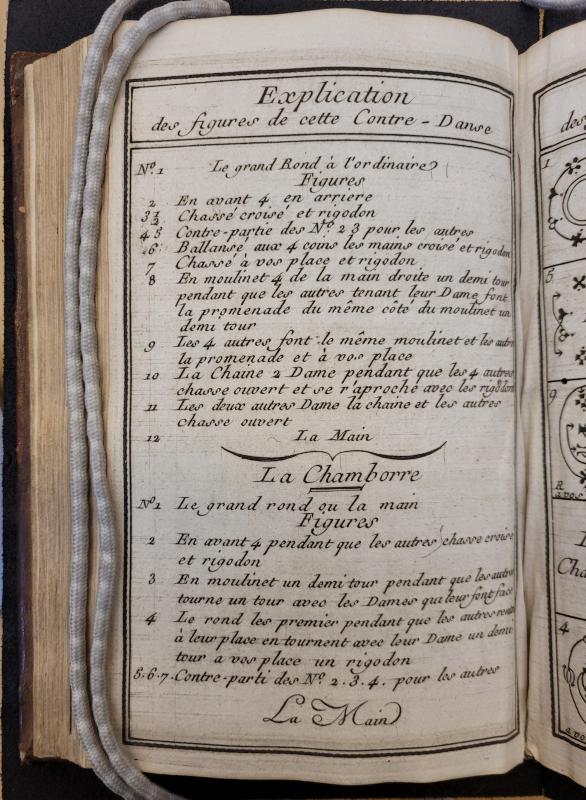 Explication
des figures de cette Contre-Danse
Nº. 1 Le grand Rond à l'ordinaire
Figures
2 En avant 4 en arriere
3 Chassé croisé et rigodon
4 5 Contre-partie des Nº. 2 3 pour les autres
6 Ballansé aux 4 coins les mains croisé et rigodon
7 Chassé à vos place et rigodon
8 En moulinet 4 de la main droite un demi tour
pendant que les autres tenant leur Dame font
la promenade du même côté du moulinet un
demi tour
9 Les 4 autres font le même moulinet et les autre
la promenade et à vos place
10 La Chaine 2 Dame pendant que les 4 autres
chasse ouvert et se r'aproche avec les rigodon
11 Les deux autres Dame la chaine et les autres
chasse ouvert
12 La Main
La Chamborre
Nº. 1 Le grand rond ou la main
Figures
2 En avant 4 pendant que les autres chasse croisé
et rigodon
3 En moulinet un demi tour pendant que les autre
tourne un tour avec les Dames qui leur font face
4 Le rond les premier pendant que les autres
à leur place en tournent avec leur Dame un demi
tour a vos place un rigodon
5.6.7. Contre-parti des Nº. 2.3.4. pour les autres
La Main
des
1
5
9
R
a vos
Cha
4
a vo